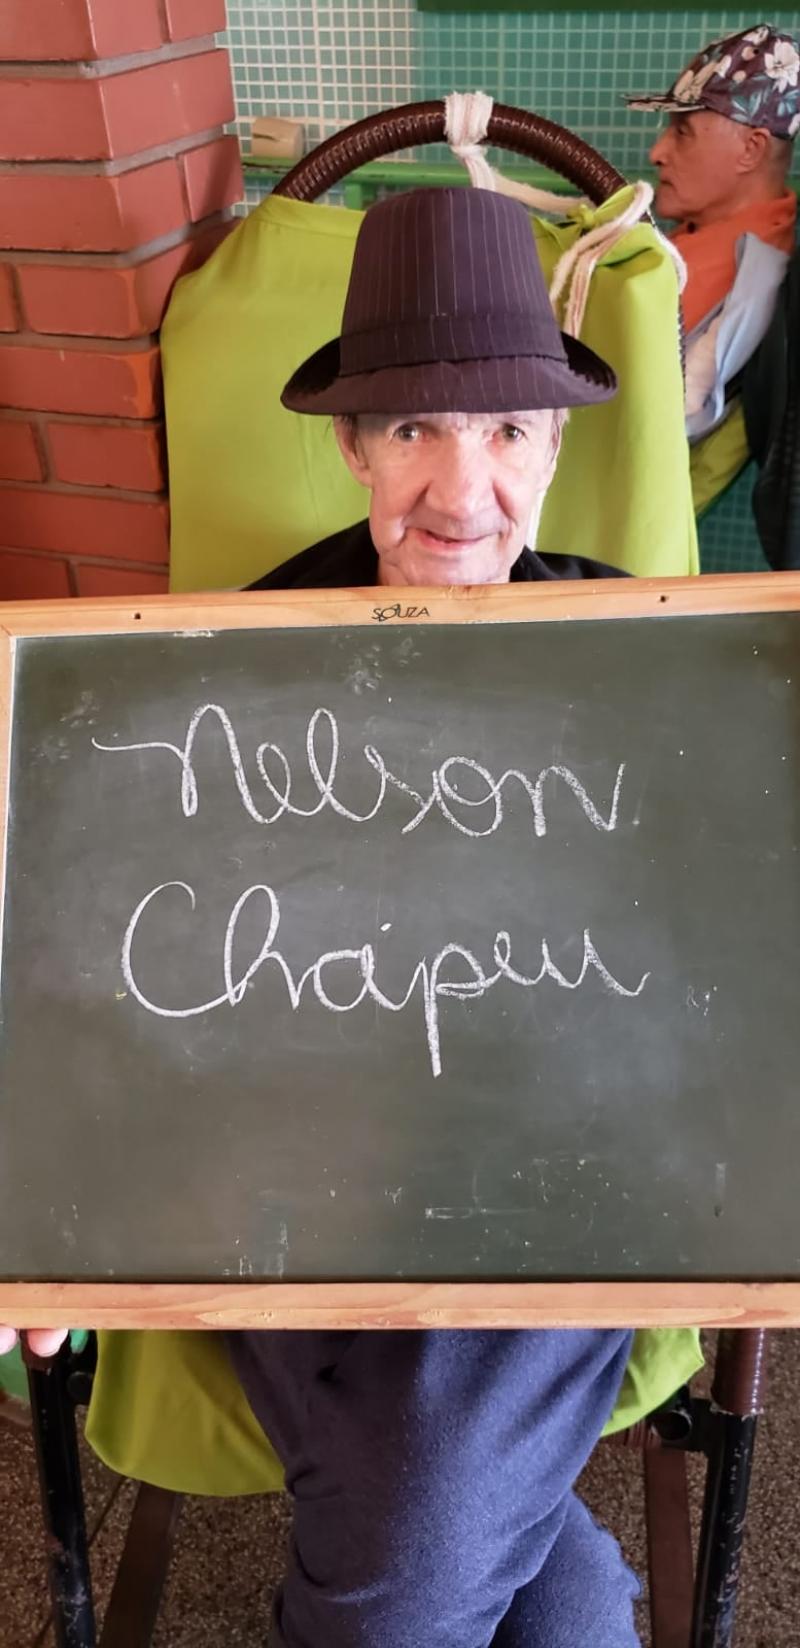 SOUZA
Nelson
Chapeu